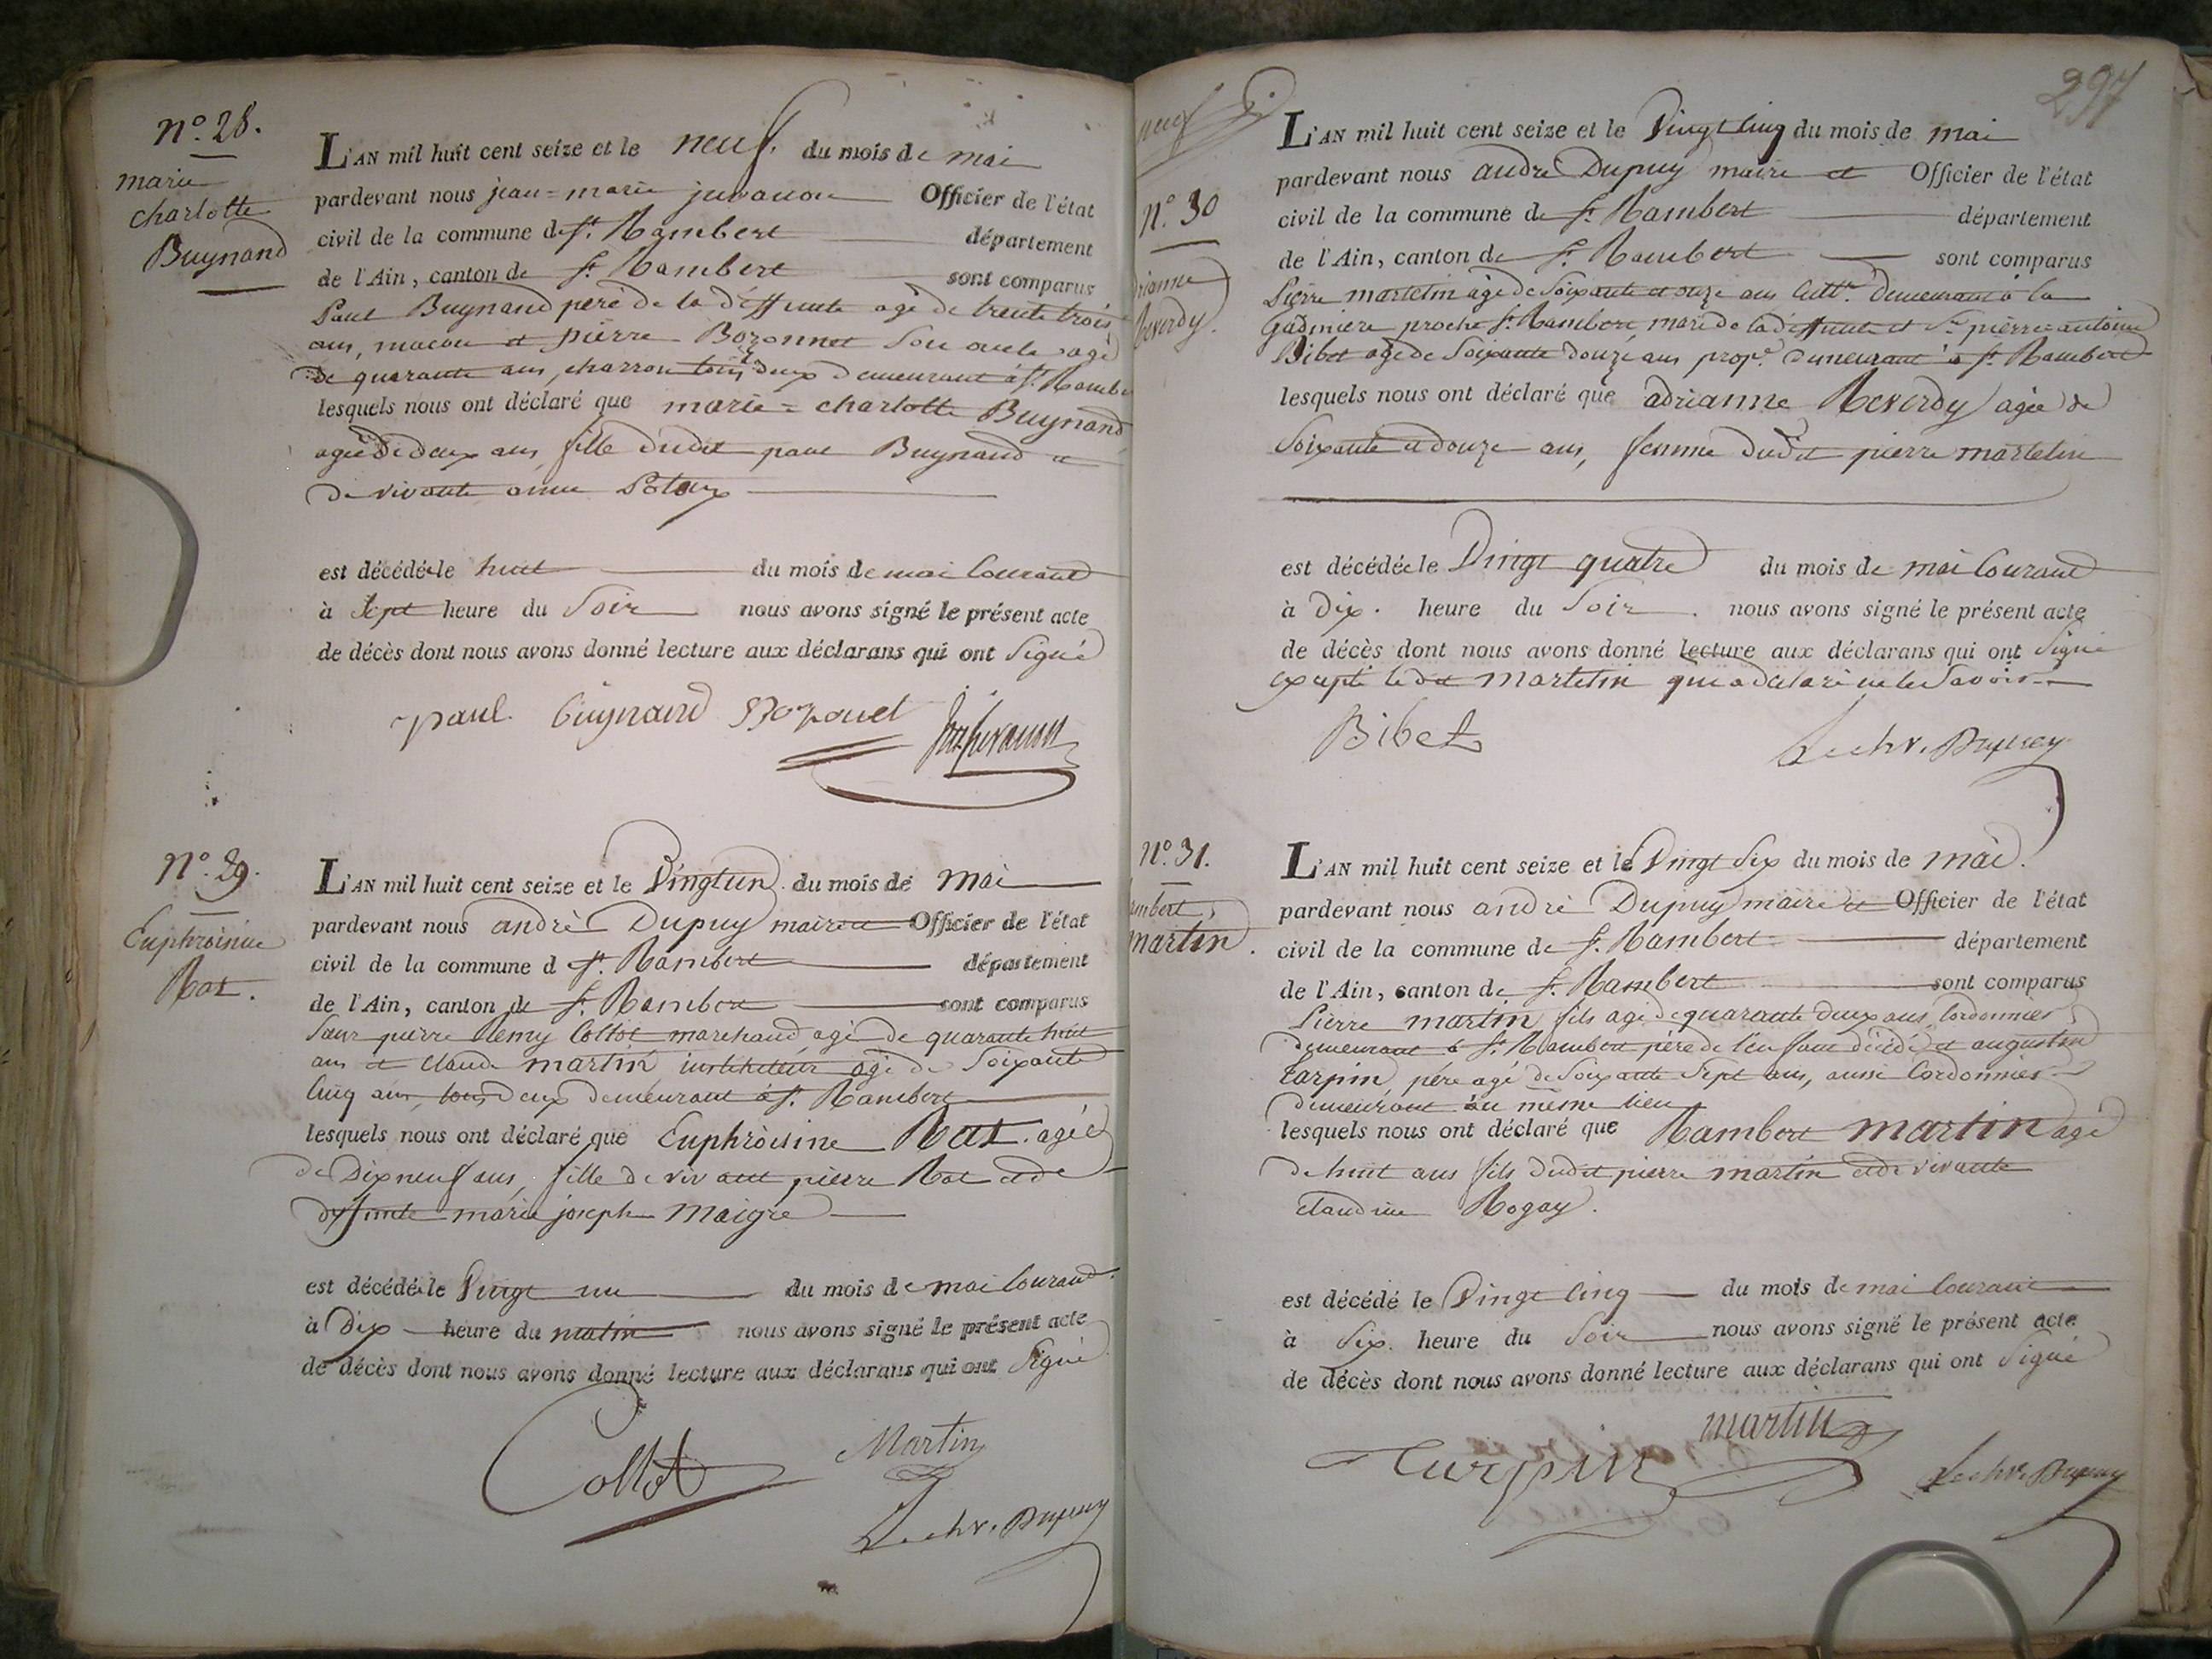 n.o 28.
marie
charlotte
Buynand
L'AN mil huit cent seize et le neuf. du mois de mai
pardevant nous jean=marie juvanon Officier de l'état
civil de la commune de St. Rambert département
de l'Ain, canton de St. Rambert sont comparus
Paul Buynand pere de la déffunte agé de trente trois
ans, macon et pierre Bozonnet son oncle agé
de quarante ans, charron tous deux demeurant à St. Rambe
lesquels nous ont déclaré que marie=charlotte Buynand
agée de deux ans, fille dudit paul Buynand et
de vivante anne
est décédée le huit du mois de mai Courant
à Sept heure du Soir nous avons signé le présent acte
de décès dont nous avons donné lecture aux déclarans qui ont Signé
paul. Buynand Bozonet
n.o 29.
Euphroisine
Rat.
L'AN mil huit cent seize et le Vingtun. du mois de mai
pardevant nous andré Dupuy maire et Officier de l'état
civil de la commune d St. Rambert département
de l'Ain, canton de St. Rambert sont comparus
Sieur pierre Remy Collot marchand agé de quarante huit
ans et claude martin instituteur agé de Soixante
Cinq ans, tous deux demeurant à St. Rambert
lesquels nous ont déclaré que Euphròisine Rat. agée
de Dixneuf ans, fille de vivant pierre Rat et de
deffunte marie joseph maigre
est décédée le Vingt un du mois de mai Courant.
à Dix heure du matin nous avons signé le présent acte
de décès dont nous avons donné lecture aux déclarans qui ont Signé
Collot Martin
Le chr. Dupuy
297
neuf
n.o 30
drianne
Reverdy.
L'AN mil huit cent seize et le Vingt Cinq du mois de mai
pardevant nous andré Dupuy maire et Officier de l'état
civil de la commune de St. Rambert département
de l'Ain, canton de St. Rambert sont comparus
Pierre martelin agé de Soixante et onze ans Cultr. demeurant à la
Gadiniere proche St. Rambert mari de la déffunte et Sr. pierre=antoine
Bibet agé de Soixante douze ans propre. demeurant à St. Rambert
lesquels nous ont déclaré que adrianne Reverdy agée de
Soixante et douze ans, femme dudit pierre martelin
est décédée le Vingt quatre du mois de mai Courant
à Dix. heure du Soir. nous avons signé le présent acte
de décès dont nous avons donné lecture aux déclarans qui ont Signé
excepté ledit martelin qui a déclaré ne le Savoir.
Bibet Le chr. Dupuy
n.o 31.
ambert
martin.
L'AN mil huit cent seize et le Vingt Six du mois de mai.
pardevant nous andré Dupuy maire et Officier de l'état
civil de la commune de St. Rambert département
de l'Ain, canton de St. Rambert sont comparus
Pierre martin fils agé de quarante deux ans, Cordonnier
demeurant à St. Rambert père de l'enfant décédé et augustin
tarpin, père agé de Soixante Sept ans, aussi Cordonnier
demeurant au meme lieu
lesquels nous ont déclaré que Rambert martin agé
de huit ans fils dudit pierre martin et de vivante
claudine Rogay.
est décédé le Vingt Cinq du mois de mai Courant
à Six. heure du Soir nous avons signé le présent acte
de décès dont nous avons donné lecture aux déclarans qui ont Signé
martin
Turpin Le chr. Dupuy